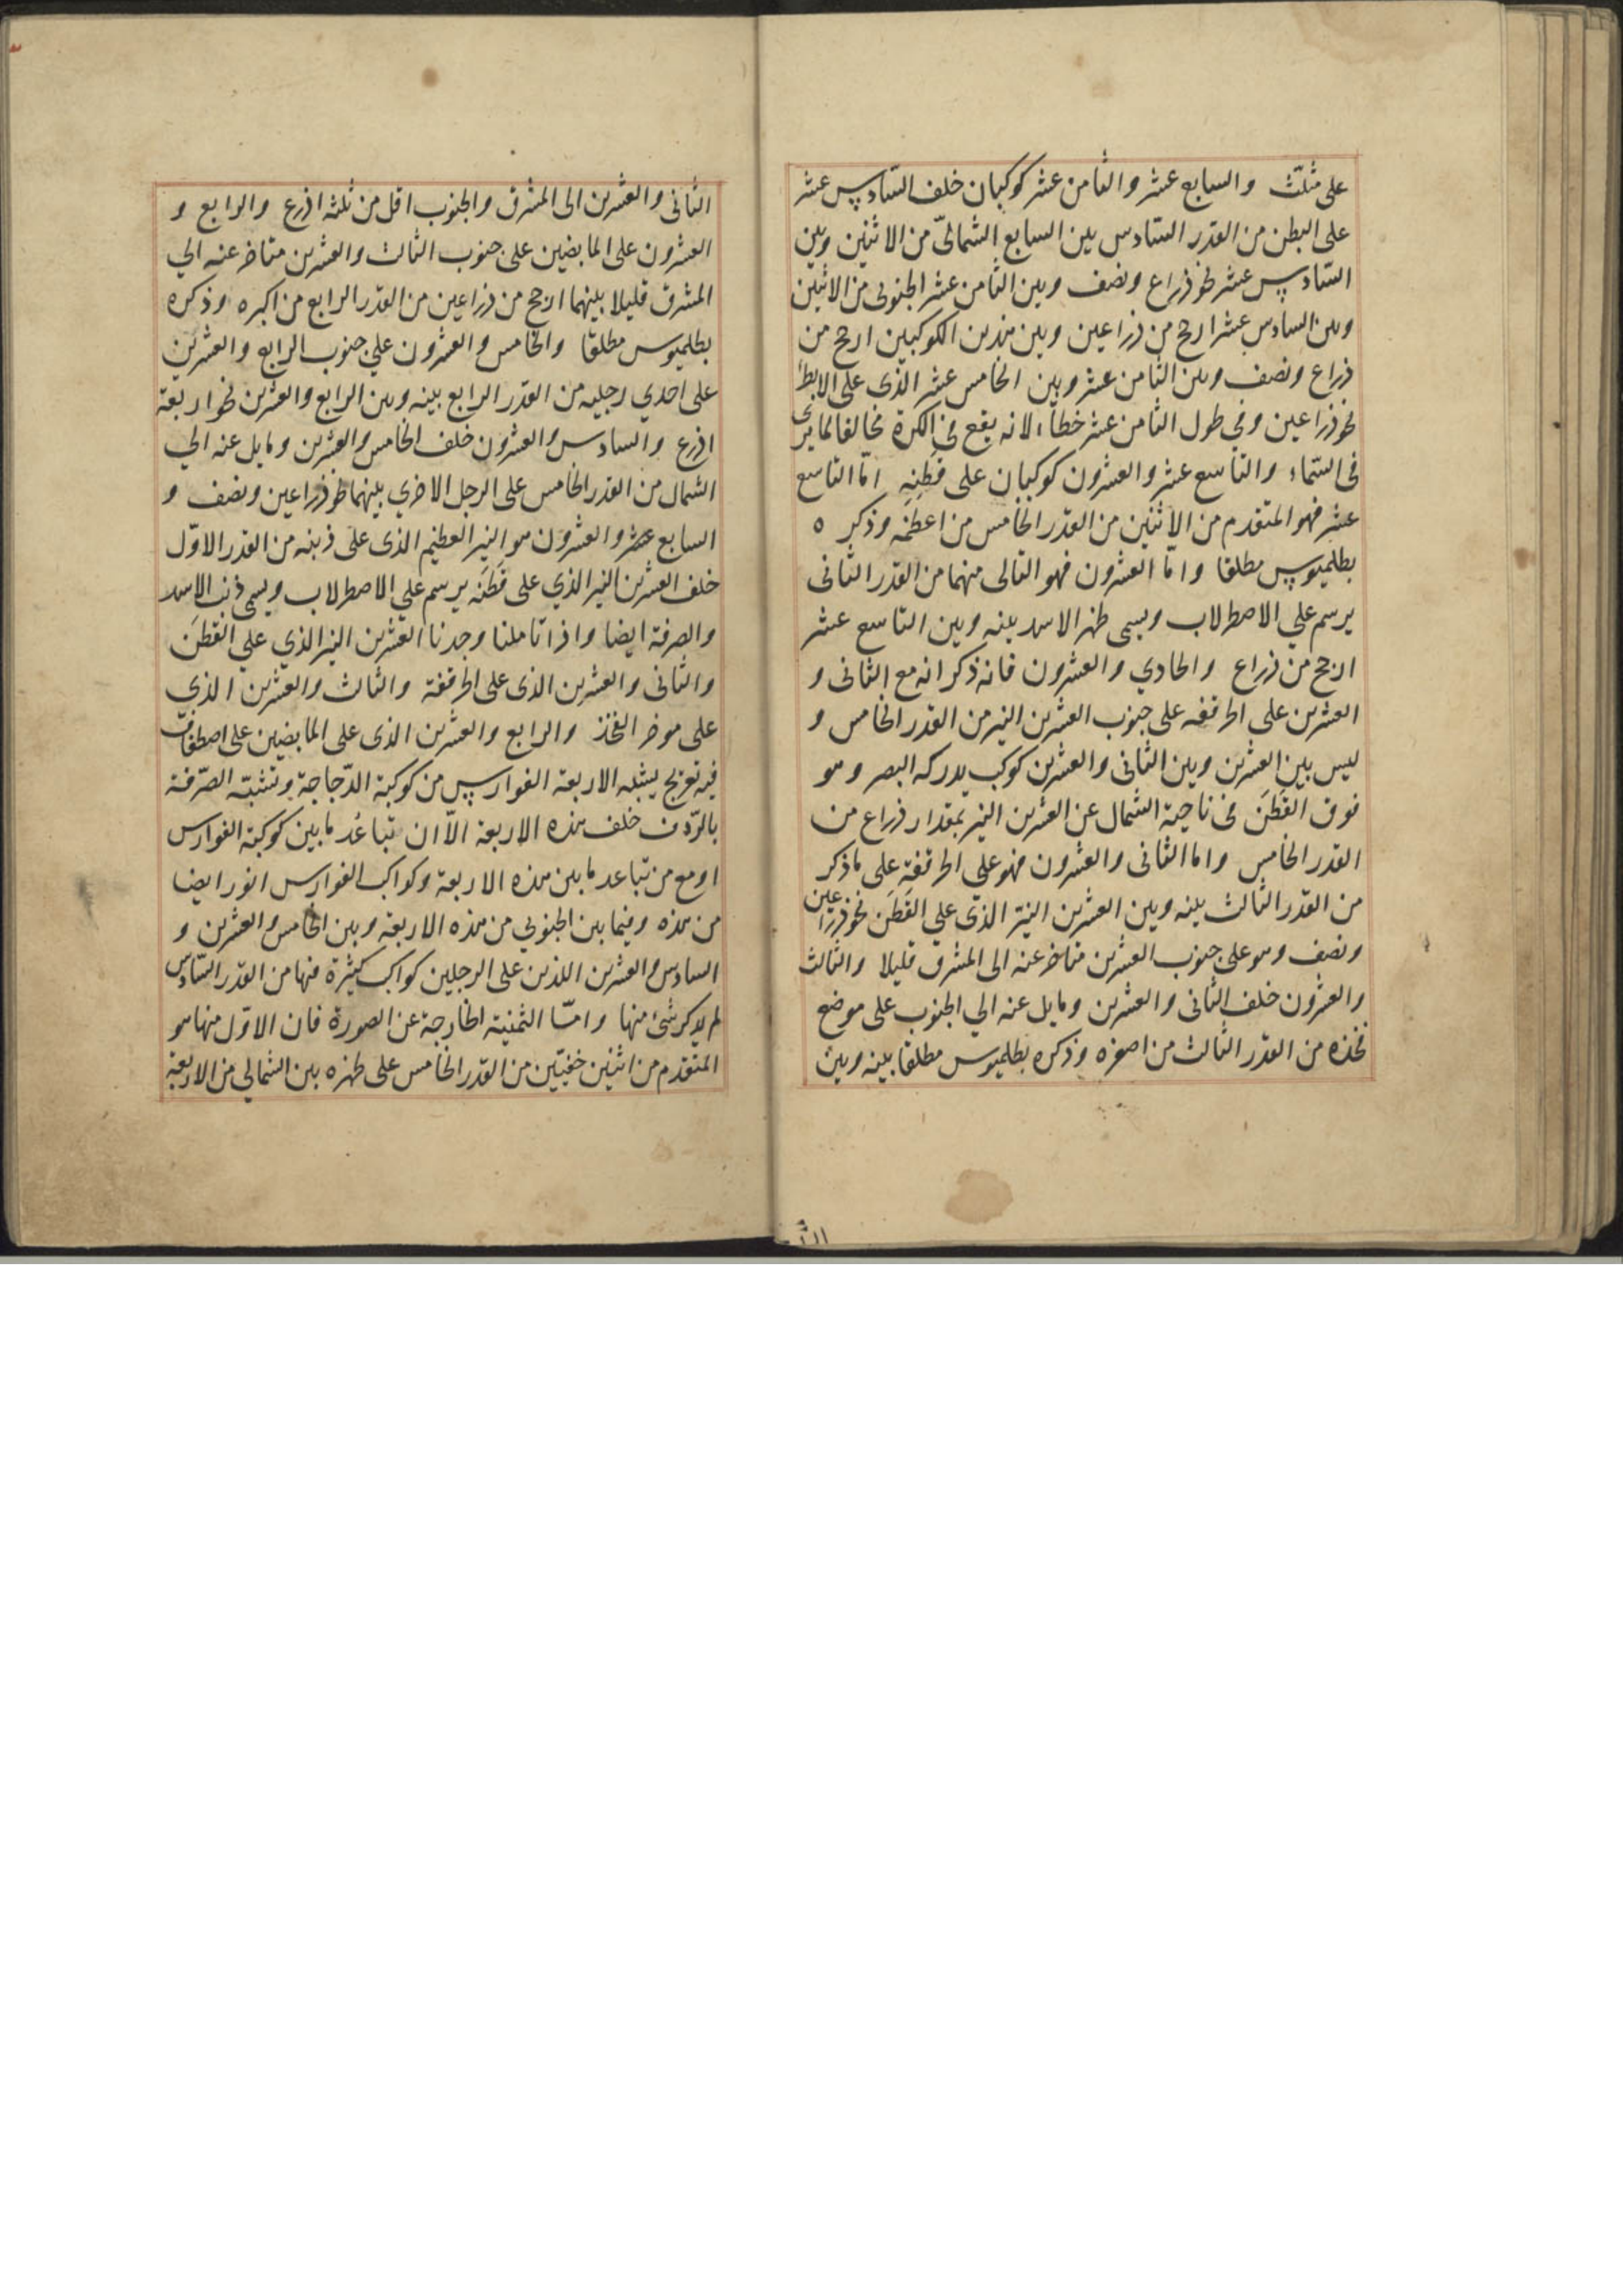 على مثلّث والسابع عشر والثامن عشر كوكبان خلف السّادس عشر
على البطن من القدر السّادس بين السابع الشمالىّ من الاثنين وبين
السّادس عشر نحو ذراع ونصف وبين الثامن عشر الجنوبى من الاثنين
وبين السادس عشر ارجح من ذراعين وبين هذين الكوكبين ارجح من
ذراع ونصف وبين الثامن عشر وبين الخامس عشر الذى على الابط
نحو ذراعين وفي طول الثامن عشر خطاء لانه يقع فى الكرة مخالفا لما يرى
فى السّماء والتاسع عشر والعشرون كوكبان على قَطَنِهِ امّا التاسع
عشر فهو المتقدم من الاثنين من القدر الخامس من اعظمه وذكره
بطلميوس مطلقا وامّا العشرون فهو التالى منهما من القدر الثانى
يرسم علي الاصطرلاب ويسمى ظهر الاسد بينه وبين التاسع عشر
ارجح من ذراع والحادي والعشرون فانه ذكر انه مع الثانى و
العشرين على الحرقفه على جنوب العشرين النير من القدر الخامس و
ليس بين العشرين وبين الثانى والعشرين كوكب يدركه البصر وهو
فوق القَطَنَ فى ناحية الشمال عن العشرين النير بمقدار ذراع من
القدر الخامس واما الثانى والعشرون فهو علي الحرقفة على ما ذكر
من القدر الثالث بينه وبين العشرين النيّر الذى علي القَطَن نحو ذراعين
ونصف وهو على جنوب العشرين متاخر عنه الى المشرق قليلا والثالث
والعشرون خلف الثانى والعشرين ومايل عنه الي الجنوب على موضع
فخذه من القدر الثالث من اصغره وذكره بطلميوس مطلقا بينه وبين
الثانى والعشرين الى المشرق والجنوب اقل من ثلثة اذرع والرابع و
العشرون على المابضين على جنوب الثالث والعشرين متاخر عنه الي
المشرق قليلا بينهما ارجح من ذراعين من القدر الرابع من اكبره وذكره
بطلميوس مطلقا والخامس والعشرون علي جنوب الرابع والعشرين
على احدي رجليه من القدر الرابع بينه وبين الرابع والعشرين نحو اربعة
اذرع والسادس والعشرون خلف الخامس والعشرين ومايل عنه الي
الشمال من القدر الخامس على الرجل الاخري بينهما نحو ذراعين ونصف و
السابع والعشرون هو النير العظيم الذى على ذنبه من القدر الاوّل
خلف العشرين النير الذي على قَطَنَه يرسم علي الاصطرلاب ويسمى ذنب الاسد
والصرفة ايضا واذا تاملنا وجدنا العشرين النير الذي علي القطن
والثانى والعشرين الذى على الحرقفة والثالث والعشرين الذي
على موخر الفخذ والرابع والعشرين الذى على المابضين على اصطفاف
فيه تعويج يشبه الاربعة الفوارس من كوكبة الدّجاجة وتشبّه الصّرفة
بالرّدف خلف هذه الاربعة الاّ ان تباعُد ما بين كوكبة الفوارس
اوسع من تباعد ما بين هذه الاربعة وكواكب الفوارس انور ايضا
من هذه وفيما بين الجنوبي من هذه الاربعة وبين الخامس والعشرين و
السادس والعشرين اللذين على الرجلين كواكب كثيرة منها من القدر السّادس
لم يذكر شئ منها وامّا الثمنية الخارجة عن الصورة فان الاوّل منها هو
المتقدم من اثنين خفيّين من القدر الخامس على ظهره بين الشمالي من الاربعة